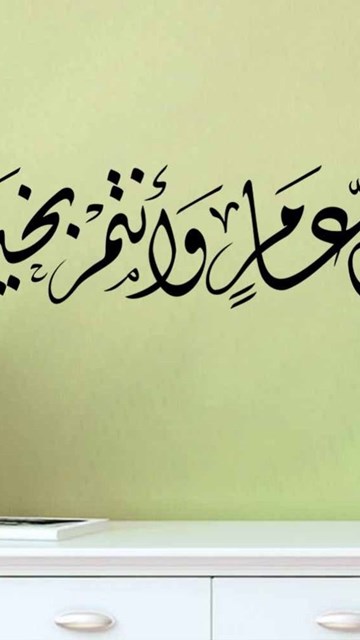 عَامٍ وَأَنتم بخير